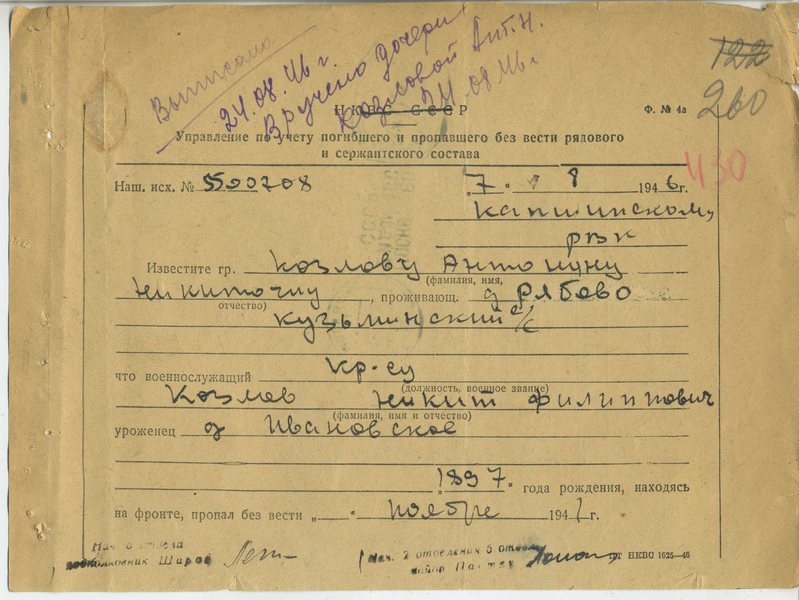 Выписано
24.08.46 г.
Вручено дочери
Козловой Ант.Н.
24.08.46 г
122
260
НКВС СССР
Ф. № 4а
Управление по учету погибшего и пропавшего без вести рядового
и сержантского состава
430
Наш. исх. № 500708 „7. 8 1946 г.
Капшинскому
рвк
Известите гр. Козлову Антонину
(фамилия, имя,
Никиточну, проживающ. д Рябово
отчество)
Кузьминский с/с
что военнослужащий кр-ец
(должность, военное звание)
Козлов Никит Филиппович
(фамилия, имя и отчество)
уроженец д Ивановское
„1897. года рождения, находясь
на фронте, пропал без вести „ . ноябре 1941 г.
Нач. 6 отдела
подполковник Шаров
Нач. 2 отделения 6 отдела
майор
НКВО 1625—45